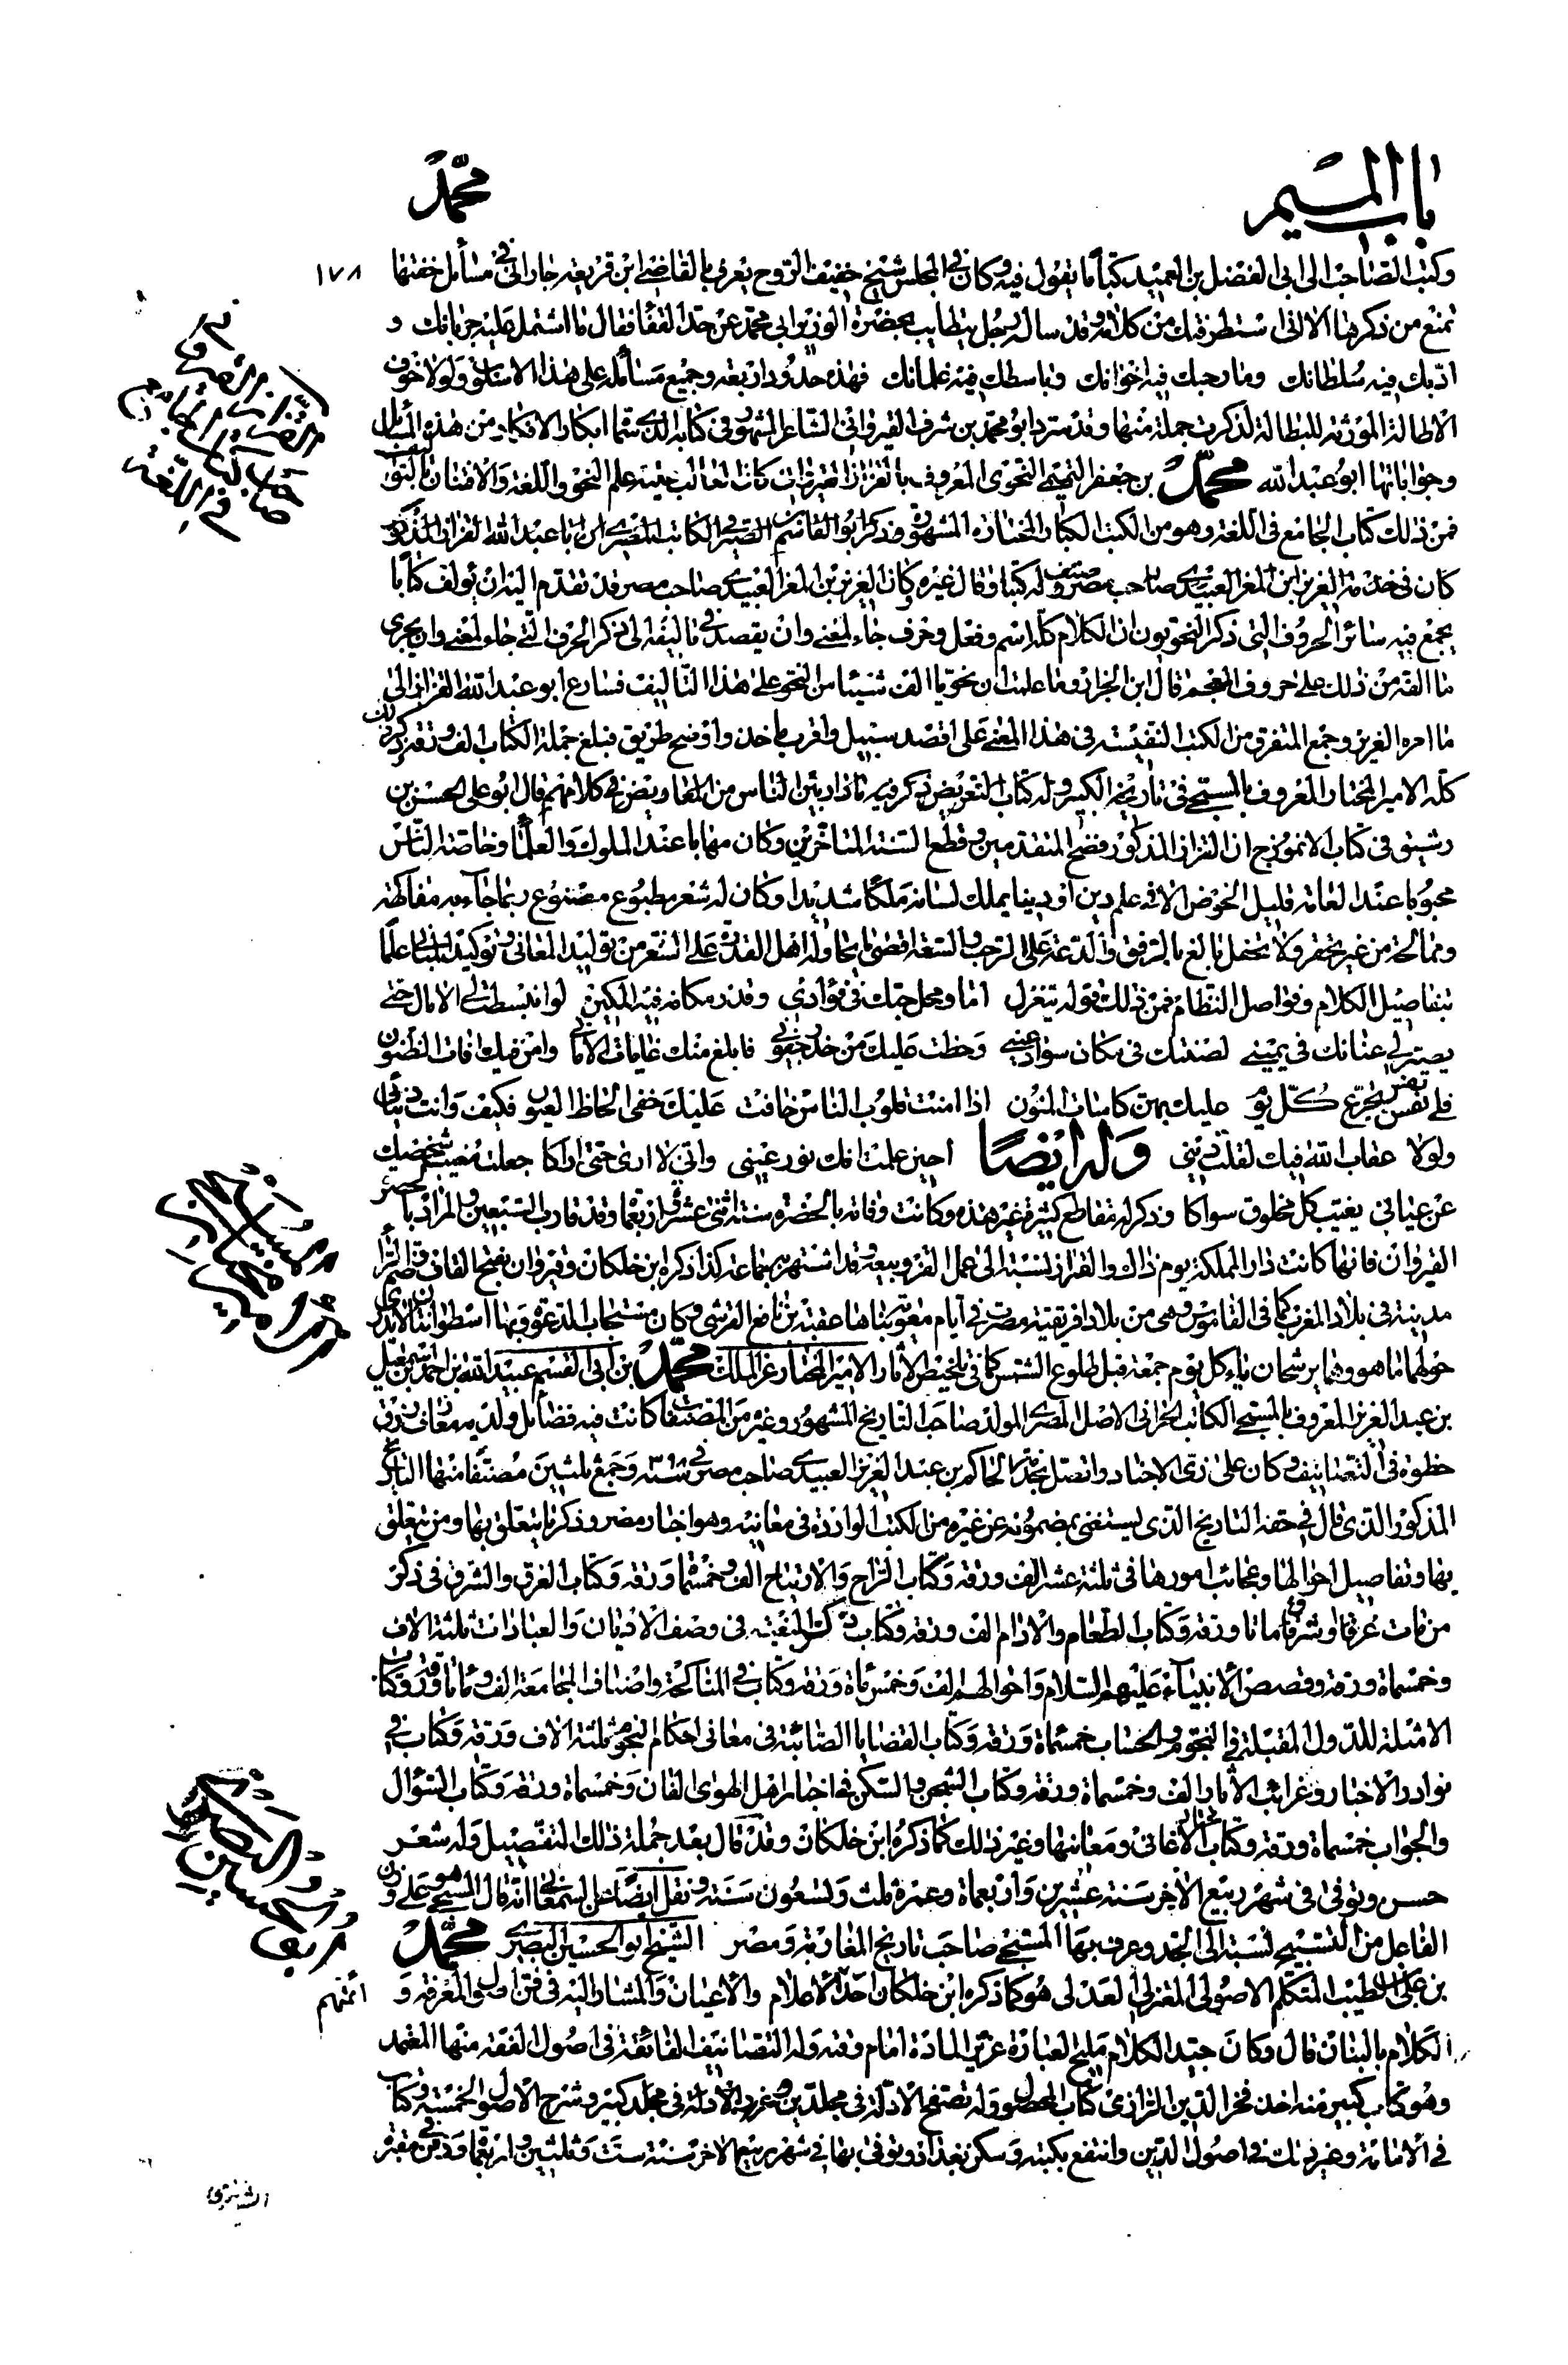 باب الميم
محمد
١٧٨
وكتب الصاحب الى ابى الفضل بن العميد كتابا يقول فيه وكان فى المجلس شيخ خفيف الروح يعرف بالقاضى ابن قريعة جارانى فى مسائل خفتها
تمنع من ذكرها الا انى استظرفت من كلامه وقد ساله رجل يتطايب بحضرة الوزير ابى محمد عن حد القفا فقال ما اشتمل عليه جربانك و
ادبك فيه سلطانك ومازحك فيه اخوانك وباسطك فيه غلمانك فهذه حدود اربعة وجميع مسائله على هذا الاسلوب ولولا خوف
الاطالة المورثة للبطالة لذكرت جملة منها وقد سرد ابو محمد بن شرف القيروانى الشاعر المشهور فى كتابه الذى سماه ابكار الافكار من هذه المسائل
وجواباتها ابو عبد الله محمد بن جعفر التميمى النحوى المعروف بالقزاز القيروانى كان الغالب عليه علم النحو واللغة والافتنان بالتواليف
فمن ذلك كتاب الجامع فى اللغة وهو من الكتب الكبار المختارة المشهورة وذكر ابو القاسم بن الصيرفى الكاتب المصرى ان ابا عبد الله القزاز المذكور
كان فى خدمة العزيز ابن المعز العبيدى صاحب مصر وصنف له كتبا وقال غيره وكان العزيز بن المعز العبيدى صاحب مصر قد تقدم اليه ان يولف كتابا
يجمع فيه سائر الحروف التى ذكر النحويون ان الكلام كله اسم وفعل وحرف جاء لمعنى وان يقصد فى تاليفه الى ذكر الحرف التى جاء لمعنى وان يجرى
ما الفه من ذلك على حروف المعجم قال ابن الجزار وما علمت ان نحويا الف شيئا من النحو على هذا التاليف فسارع ابو عبد الله القزاز الى
ما امره العزيز وجمع المتفرق من الكتب النفيسة فى هذا المعنى على اقصد سبيل واقرب ماخذ واوضح طريق فبلغ جملة الكتاب الف ورقة ذكر ذلك
كله الامير المختار المعروف بالمسبحى فى تاريخه الكبير وله كتاب التعريض ذكر فيه ما دار بين الناس من المعاريض فى كلامهم قال ابو على الحسن بن
رشيق فى كتاب الانموذج ان القزاز المذكور فضح المتقدمين وقطع السنة المتاخرين وكان مهابا عند الملوك والعلما وخاصة الناس
محبوبا عند العامة قليل الخوض الا فى علم دين او دنيا يملك لسانه ملكا شديدا وكان له شعر مطبوع مصنوع ربما جاء به مفاكهة
وممالحة من غير تحفز ولا تحفل يبلغ بالرفق والدعة على الرحب والسعة اقصى ما يحاوله اهل القدرة على الشعر من توليد المعانى وتوكيد المبانى علما
بتفاصيل الكلام وفواصل النظام فمن ذلك قوله يتغزل اما ومحل حبك فى فؤادى وقدر مكانه فيه المكين لو انبسطت لى الامال حتى
يصير لى عنانك فى يمينى لصنتك فى مكان سواد عينى وخطت عليك من حذر جفونى فابلغ منك غايات الامانى وامن فيك افات الظنون
فلى نفس تجرع كل يوم عليك بهن كاسات المنون اذا امنت قلوب الناس خافت عليك خفى الحاظ العيون فكيف وانت دنياى
ولولا عقاب الله فيك لقلت دينى وله ايضا احين علمت انك نور عينى وانى لا ارى حتى اراكا جعلت مغيب شخصك
عن عيانى يغيب كل مخلوق سواكا وذكر له مقاطع كثيرة غير هذه وكانت وفاته بالحضرة سنة اثنتى عشرة واربعماة وقد قارب السبعين والمراد بالحضرة
القيروان فانها كانت دار المملكة يوم ذاك والقزاز نسبة الى عمل القز وبيعه وقد اشتهر به جماعة كذا ذكره ابن خلكان وقيروان بفتح القاف وضم الرا
مدينة فى بلاد المغرب كما فى القاموس وهى من بلاد افريقية مصرت فى ايام معوية بناها عقبة بن نافع القرشى وكان مستجاب الدعوة وبها اسطوانتان لا يدرى
جوهرهما ما هو وهما يرشحان ماء كل يوم جمعة قبل طلوع الشمس كما فى تلخيص الاثار الامير المختار عز الملك محمد بن ابى القسم عبيد الله بن احمد بن اسمعيل
بن عبد العزيز المعروف بالمسبحى الكاتب الحرانى الاصل المصرى المولد صاحب التاريخ المشهور وغيره من المصنفات كانت فيه فضائل ولديه معارف ورزق
حظوة فى التصانيف وكان على زى الاجناد واتصل بخدمة الحاكم بن عبد العزيز العبيدى صاحب مصر فى سنة وجمع ثلثين مصنفا منها التاريخ
المذكور الذى قال فى حقه التاريخ الذى يستغنى بمضمونه عن غيره من الكتب الواردة فى معانيه وهو اخبار مصر وذكر ما يتعلق بها ومن يتعلق
بها وتفاصيل احوالها وعجائب امورها فى ثلثة عشر الف ورقة وكتاب الراح والارتياح الف وخمسماة ورقة وكتاب الغرق والشرق فى ذكر
من مات غرقا وشرقا ماتا ورقة وكتاب الطعام والادام الف ورقة وكتاب درك البغية فى وصف الاديان والعبادات ثلثة الاف
وخمسماة ورقة وقصص الانبياء عليهم السلام واحوالهم الف وخمس ماة ورقة وكتاب فى المناكحة واصناف المجامعة الف وماتا ورقة وكتاب
الامثلة للدول المقبلة فى النجوم والحساب خمسماة ورقة وكتاب القضايا الصائبة فى معانى احكام النجوم ثلثة الاف ورقة وكتاب فى
نوادر الاخبار وغرائب الاثار الف وخمسماة ورقة وكتاب الشجن والسكن فى اخبار اهل الهوى الفان وخمسماة ورقة وكتاب السؤال
والجواب خمسماة ورقة وكتاب الاغانى ومعانيها وغير ذلك كما ذكره ابن خلكان وقد قال بعد جملة ذلك التفصيل وله شعر
حسن وتوفى فى شهر ربيع الاخر سنة عشرين واربعماة وعمره ثلث وتسعون سنة ونقل ايضا عن السمعانى انه قال المسبحى هو على وزن
الفاعل من التسبيح نسبة الى الجد وعرف بها المسبحى صاحب تاريخ المغاربة ومصر الشيخ ابو الحسين البصرى محمد
بن على الطيب المتكلم الاصولى المعتزلى العدلى هو كما ذكره ابن خلكان احد الاعلام والاعيان والمشار اليه فى فن اصول المعرفة و ائمتهم
الكلام بالبنان قال وكان جيد الكلام مليح العبارة غزير المادة امام وقته وله التصانيف الفائقة فى اصول الفقه منها المعتمد
وهو كتاب كبير منه اخذ فخر الدين الرازى كتاب المحصول وله تصفح الادلة فى مجلدين وغرر الادلة فى مجلد كبير وشرح الاصول الخمسة وكتاب
فى الامامة وغير ذلك فى اصول الدين وانتفع بكتبه وسكن بغداد وتوفى بها فى شهر ربيع الاخر سنة ست وثلثين واربعماة ودفن فى مقبرة
الشونيزى